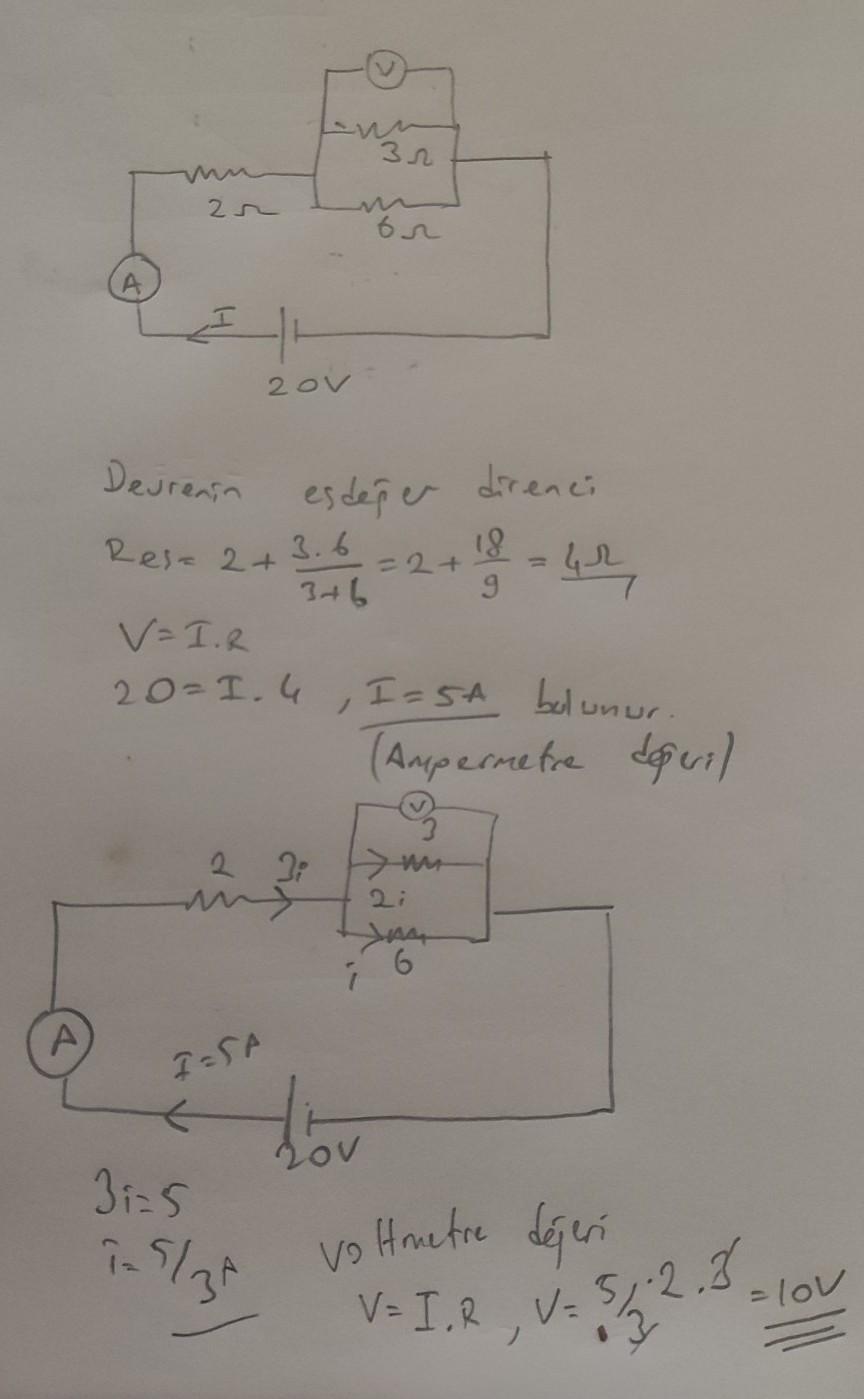 V
3Ω
2Ω
6Ω
A
I
20V
Devrenin eşdeğer direnci
Reş= 2 + 3.6/3+6 = 2 + 18/9 = 4Ω
V=I.R
20=I.4 , I=5A bulunur.
(Ampermetre değeri)
V
3
2 3i
2i
i 6
A
I=5A
20V
3i=5
i=5/3A
Voltmetre değeri
V=I.R , V= 5/3.2.3 =10V